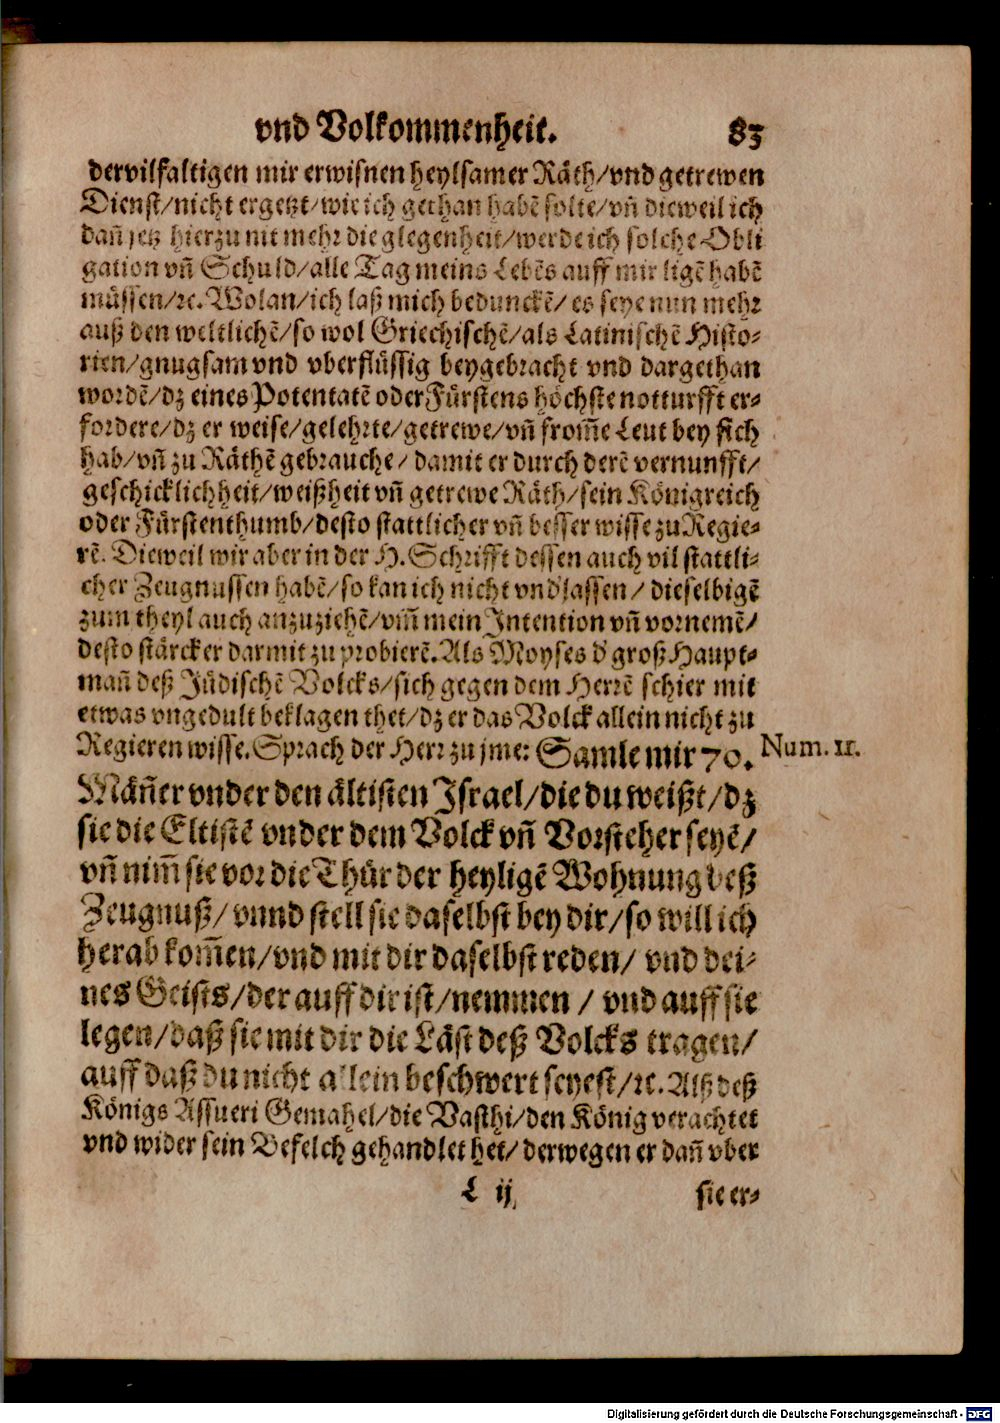 vnd Volkommenheit. 83
dervilfaltigen mir erwisnen heylsamer Räth/vnd getrewen
Dienst/nicht ergetzt/wie ich gethan habē solte/vn̄ dieweil ich
dan̄ jetz hierzu nit mehr die glegenheit/werde ich solche Obli
gation vn̄ Schuld/alle Tag meins Lebēs auff mir ligē habē
müssen/ꝛc. Wolan/ich laß mich bedunckē/ es seye nun mehr
auß den weltlichē/so wol Griechischē/als Latinischē Histo-
rien/gnugsam vnd vberflüssig beygebracht vnd dargethan
wordē/dz eines Potentatē oder Fürstens höchste notturfft er-
fordere/dz er weise/gelehrte/getrewe/vn̄ from̄e Leut bey sich
hab/vn̄ zu Räthē gebrauche/ damit er durch derē vernunfft/
geschicklichheit/weißheit vn̄ getrewe Räth/sein Königreich
oder Fürstenthumb/desto stattlicher vn̄ besser wisse zu Regie-
rē. Dieweil wir aber in der H. Schrifft dessen auch vil stattli-
cher Zeugnussen habē/so kan ich nicht vndlassen/ dieselbigē
zum theyl auch anzuziehē/vm̄ mein Intention vn̄ vornemē/
desto stärcker darmit zu probierē. Als Moyses d' groß Haupt-
man̄ deß Jüdischē Volcks/sich gegen dem Herrē schier mit
etwas vngedult beklagen thet/dz er das Volck allein nicht zu
Regieren wisse. Sprach der Herr zu jme: Samle mir 70. Num. 11.
Män̄er vnder den ältisten Israel/die du weißt/dz
sie die Eltistē vnder dem Volck vn̄ Vorsteher seyē/
vn̄ nim̄ sie vor die Thür der heyligē Wohnung deß
Zeugnuß/ vnnd stell sie daselbst bey dir/so will ich
herab kom̄en/vnd mit dir daselbst reden/ vnd dei-
nes Geists/der auff dir ist/nemmen / vnd auff sie
legen/daß sie mit dir die Läst deß Volcks tragen/
auff daß du nicht allein beschwert seyest/ꝛc. Alß deß
Königs Assueri Gemahel/die Vasthi/den König verachtet
vnd wider sein Befelch gehandlet het/ derwegen er dan̄ vber
L ij sie er-
Digitalisierung gefördert durch die Deutsche Forschungsgemeinschaft - DFG